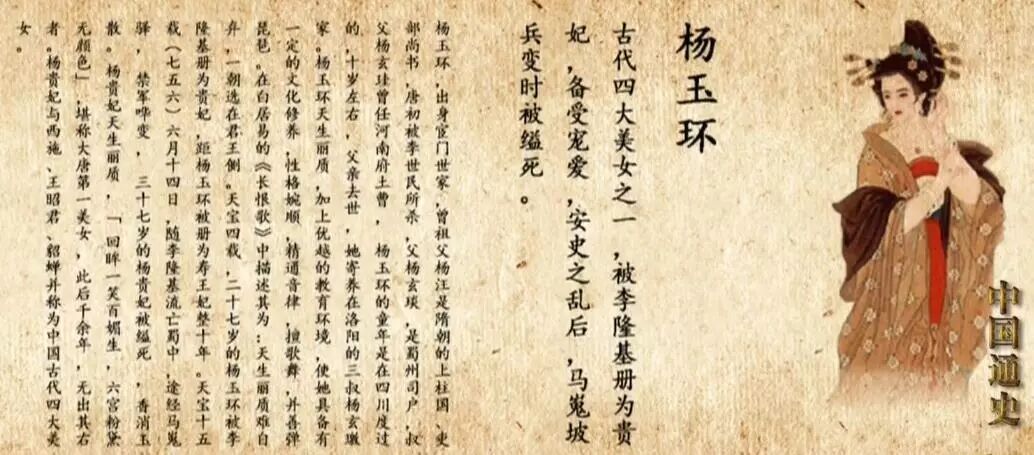 杨玉环
古代四大美女之一，被李隆基册为贵
妃，备受宠爱，安史之乱后，马嵬坡
兵变时被缢死。
杨玉环，出身宦门世家，曾祖父杨汪是隋朝的上柱国、吏
部尚书，唐初被李世民所杀，父杨玄琰，是蜀州司户，叔
父杨玄珪曾任河南府土曹，杨玉环的童年是在四川度过
的，十岁左右，父亲去世，她寄养在洛阳的三叔杨玄璬
家。杨玉环天生丽质，加上优越的教育环境，使她具备有
一定的文化修养，性格婉顺，精通音律，擅歌舞，并善弹
琵琶。在白居易的《长恨歌》中描述其为：天生丽质难自
弃，一朝选在君王侧。天宝四载，二十七岁的杨玉环被李
隆基册为贵妃，距杨玉环被册为寿王妃整十年。天宝十五
载（七五六）六月十四日，随李隆基流亡蜀中，途经马嵬
驿，禁军哗变，三十七岁的杨贵妃被缢死，香消玉
散。杨贵妃天生丽质，「回眸一笑百媚生，六宫粉黛
无颜色」，堪称大唐第一美女，此后千余年，无出其右
者。杨贵妃与西施、王昭君、貂蝉并称为中国古代四大美
女。
中国通史